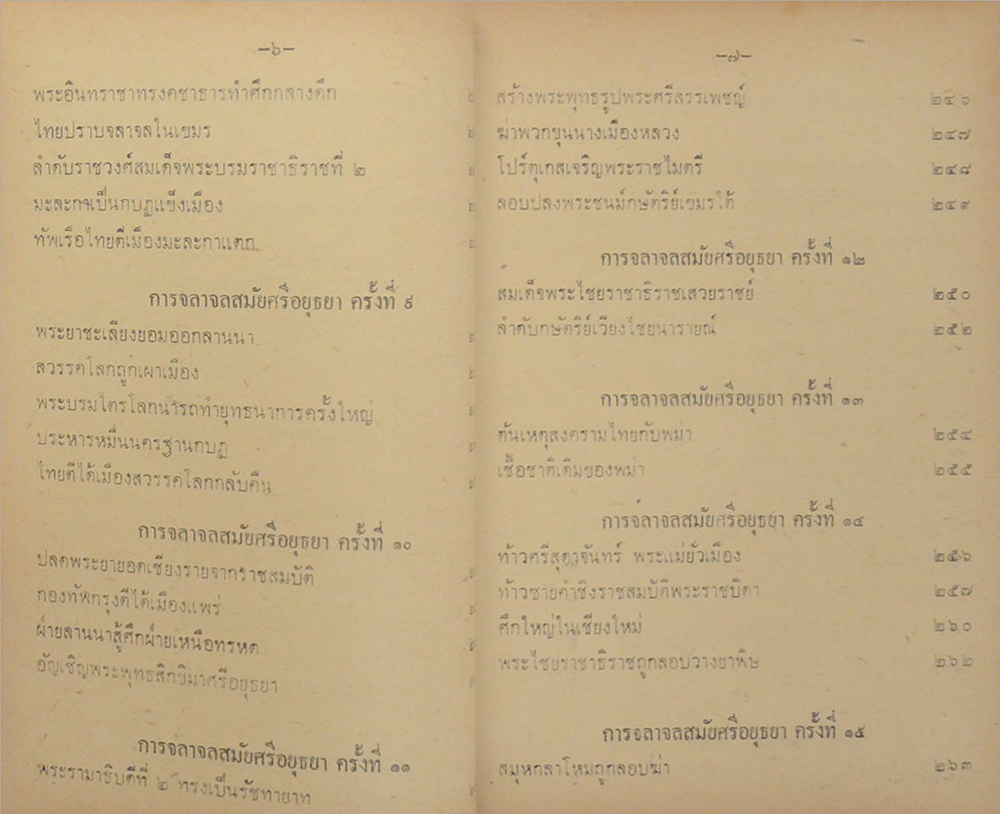 -๖-
พระอินทราชาทรงคชาธารทำศึกกลางดึก
ไทยปราบจลาจลในเขมร
ลำดับราชวงศ์สมเด็จพระบรมราชาธิราชที่ ๒
มะละกาเป็นกบฏแข็งเมือง
ทัพเรือไทยตีเมืองมะละกาแตก
การจลาจลสมัยศรีอยุธยา ครั้งที่ ๙
พระยาชะเลียงยอมออกลานนา
สวรรคโลกถูกเผาเมือง
พระบรมไตรโลกนารถทำยุทธนาการครั้งใหญ่
ประหารหมื่นนครฐานกบฏ
ไทยตีได้เมืองสวรรคโลกกลับคืน
การจลาจลสมัยศรีอยุธยา ครั้งที่ ๑๐
ปลดพระยายอดเชียงรายจากราชสมบัติ
กองทัพกรุงตีได้เมืองแพร่
ฝ่ายลานนาสู้ศึกฝ่ายเหนือทรหด
อัญเชิญพระพุทธสิกขิมาศรีอยุธยา
การจลาจลสมัยศรีอยุธยา ครั้งที่ ๑๑
พระรามาธิบดีที่ ๒ ทรงเป็นรัชทายาท
-๗-
สร้างพระพุทธรูปพระศรีสรรเพชญ์ ๒๔๖
ฆ่าพวกขุนนางเมืองหลวง ๒๔๗
โปร์ตุเกสเจริญพระราชไมตรี ๒๔๘
ลอบปลงพระชนม์กษัตริย์เขมรใต้ ๒๔๙
การจลาจลสมัยศรีอยุธยา ครั้งที่ ๑๒
สมเด็จพระไชยราชาธิราชเสวยราชย์ ๒๕๐
ลำดับกษัตริย์เวียงไชยนารายณ์ ๒๕๒
การจลาจลสมัยศรีอยุธยา ครั้งที่ ๑๓
ต้นเหตุสงครามไทยกับพม่า ๒๕๔
เชื้อชาติเดิมของพม่า ๒๕๕
การจลาจลสมัยศรีอยุธยา ครั้งที่ ๑๔
ท้าวศรีสุดาจันทร์ พระแม่ยั่วเมือง ๒๕๖
ท้าวซายคำชิงราชสมบัติพระราชบิดา ๒๕๗
ศึกใหญ่ในเชียงใหม่ ๒๖๐
พระไชยราชาธิราชถูกลอบวางยาพิษ ๒๖๒
การจลาจลสมัยศรีอยุธยา ครั้งที่ ๑๕
สมุหกลาโหมถูกลอบฆ่า ๒๖๓